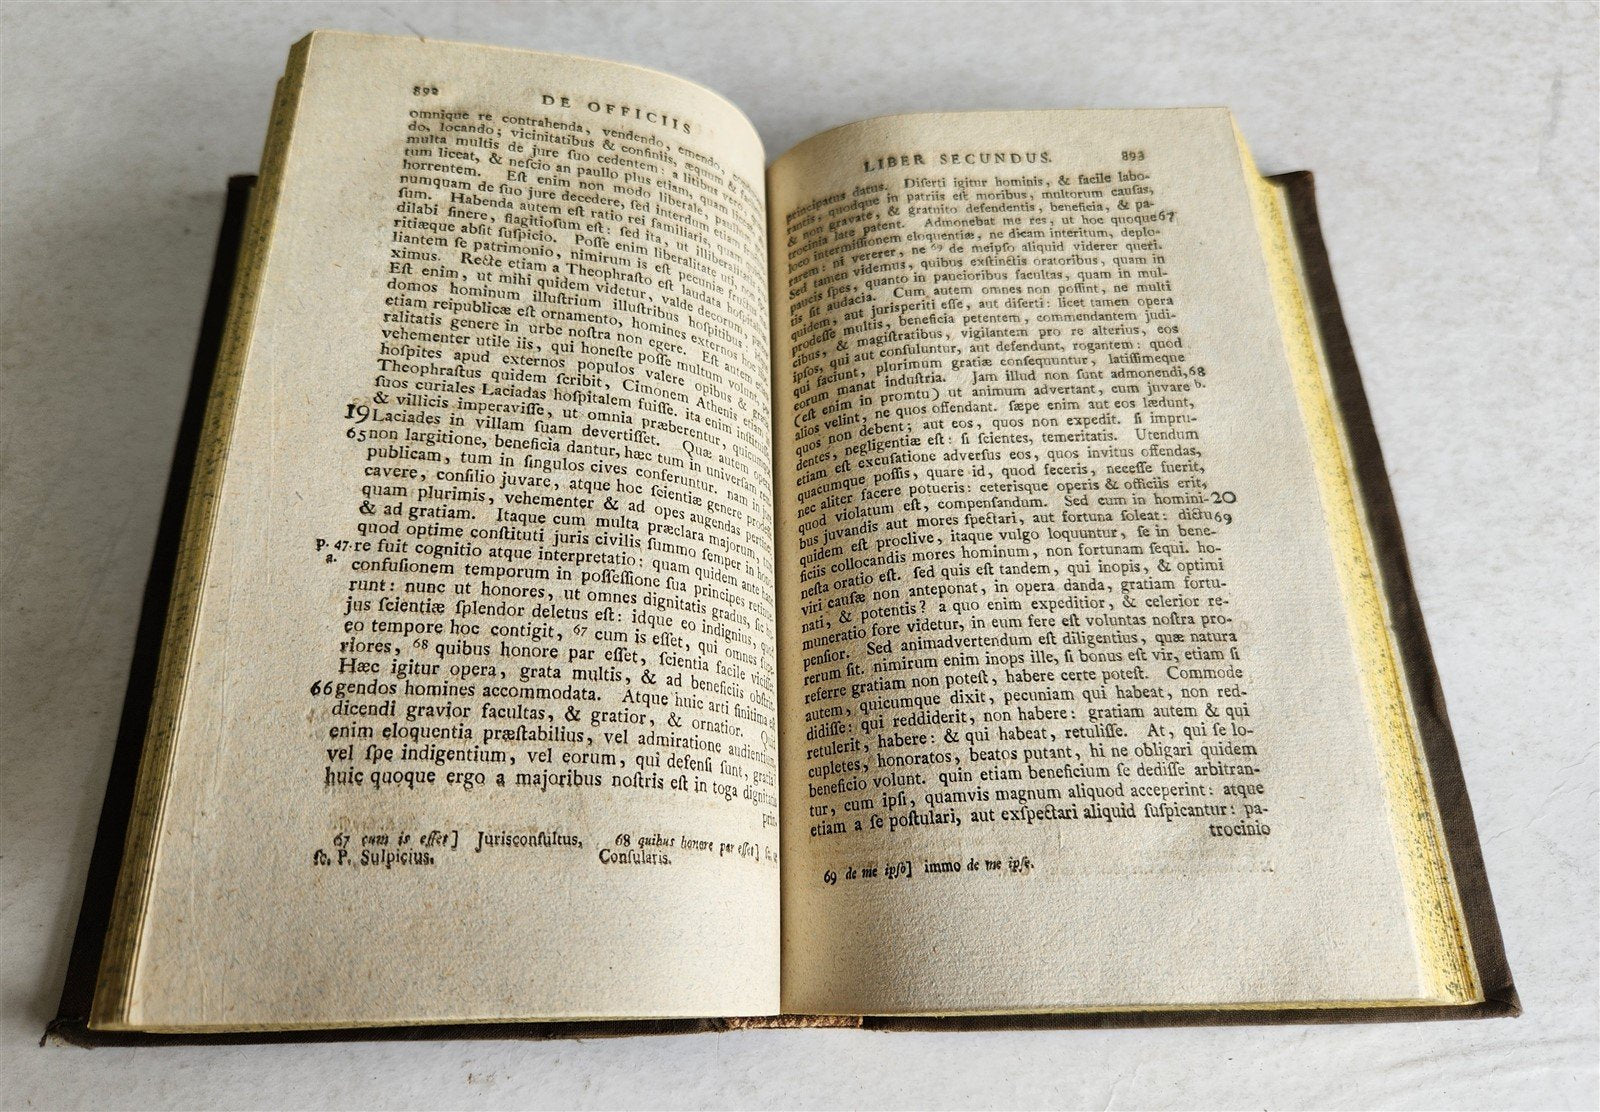 892
DE OFFICIIS
omnique re contrahenda, vendendo, emendo,
do, locando; vicinitatibus & confiniis, æquum &
multa multis de jure ſuo cedentem: a litibus vero,
tum liceat, & neſcio an paullo plus etiam, quam liceat,
horrentem. Eſt enim non modo liberale, paullum
numquam de ſuo jure decedere, ſed interdum etiam
ſum. Habenda autem eſt ratio rei familiaris, quam
dilabi ſinere, flagitioſum eſt: ſed ita, ut illiberalitatis
ritiæque abſit ſuſpicio. Poſſe enim liberalitate uti, non
liantem ſe patrimonio, nimirum is eſt pecuniæ fructus
ximus. Recte etiam a Theophraſto eſt laudata hoſpitalitas.
Eſt enim, ut mihi quidem videtur, valde decorum,
domos hominum illuſtrium illuſtribus hoſpitibus,
etiam reipublicæ eſt ornamento, homines externos hoc
ralitatis genere in urbe noſtra non egere. Eſt autem
vehementer utile iis, qui honeſte poſſe multum volunt,
hoſpites apud externos populos valere opibus &
Theophraſtus quidem ſcribit, Cimonem Athenis etiam
ſuos curiales Laciadas hoſpitalem fuiſſe. ita enim
& villicis imperaviſſe, ut omnia præberentur, quicumque
19 Laciades in villam ſuam devertiſſet. Quæ autem opera,
65 non largitione, beneficia dantur, hæc tum in univerſam rem
publicam, tum in ſingulos cives conferuntur. nam in jure
cavere, conſilio juvare, atque hoc ſcientiæ genere prodeſſe
quam plurimis, vehementer & ad opes augendas pertinet,
& ad gratiam. Itaque cum multa præclara majorum, tum
quod optime conſtituti juris civilis ſummo ſemper in hono-
p. 47. re fuit cognitio atque interpretatio: quam quidem ante hanc
a. confuſionem temporum in poſſeſſione ſua principes retinue-
runt: nunc ut honores, ut omnes dignitatis gradus, ſic hu-
jus ſcientiæ ſplendor deletus eſt: idque eo indignius, quod
eo tempore hoc contigit, 67 cum is eſſet, qui omnes ſupe-
riores, 68 quibus honore par eſſet, ſcientia facile viciſſet.
Hæc igitur opera, grata multis, & ad beneficiis obſtrin-
66 gendos homines accommodata. Atque huic arti finitima eſt
dicendi gravior facultas, & gratior, & ornatior. Quid
enim eloquentia præſtabilius, vel admiratione audientium,
vel ſpe indigentium, vel eorum, qui defenſi ſunt, gratia?
huic quoque ergo a majoribus noſtris eſt in toga dignitatis
prin-
67 cum is eſſet] Jurisconſultus,
ſc. P. Sulpicius.
68 quibus honore par eſſet] ſc.
Conſularis.
LIBER SECUNDUS. 893
principatus datus. Diſerti igitur hominis, & facile labo-
rantis, quodque in patriis eſt moribus, multorum cauſas,
& non gravate, & gratuito defendentis, beneficia, & pa-
trocinia late patent. Admonebat me res, ut hoc quoque 67
loco intermiſſionem eloquentiæ, ne dicam interitum, deplo-
rarem: ni vererer, ne 69 de meipſo aliquid viderer queri.
Sed tamen videmus, quibus exſtinctis oratoribus, quam in
paucis ſpes, quanto in paucioribus facultas, quam in mul-
tis ſit audacia. Cum autem omnes non poſſint, ne multi
quidem, aut jurisperiti eſſe, aut diſerti: licet tamen opera
prodeſſe multis, beneficia petentem, commendantem judi-
cibus, & magiſtratibus, vigilantem pro re alterius, eos
ipſos, qui aut conſuluntur, aut defendunt, rogantem: quod
qui faciunt, plurimum gratiæ conſequuntur, latiſſimeque
eorum manat induſtria. Jam illud non ſunt admonendi, 68
(eſt enim in promtu) ut animum advertant, cum juvare b.
alios velint, ne quos offendant. ſæpe enim aut eos lædunt,
quos non debent; aut eos, quos non expedit. ſi impru-
dentes, negligentiæ eſt: ſi ſcientes, temeritatis. Utendum
etiam eſt excuſatione adverſus eos, quos invitus offendas,
quacumque poſſis, quare id, quod feceris, neceſſe fuerit,
nec aliter facere potueris: ceterisque operis & officiis erit,
quod violatum eſt, compenſandum. Sed cum in homini- 20
bus juvandis aut mores ſpectari, aut fortuna ſoleat: dictu 69
quidem eſt proclive, itaque vulgo loquuntur, ſe in bene-
ficiis collocandis mores hominum, non fortunam ſequi. ho-
neſta oratio eſt. ſed quis eſt tandem, qui inopis, & optimi
viri cauſæ non anteponat, in opera danda, gratiam fortu-
nati, & potentis? a quo enim expeditior, & celerior re-
muneratio fore videtur, in eum fere eſt voluntas noſtra pro-
penſior. Sed animadvertendum eſt diligentius, quæ natura
rerum ſit. nimirum enim inops ille, ſi bonus eſt vir, etiam ſi
referre gratiam non poteſt, habere certe poteſt. Commode
autem, quicumque dixit, pecuniam qui habeat, non red-
didiſſe: qui reddiderit, non habere: gratiam autem & qui
retulerit, habere: & qui habeat, retuliſſe. At, qui ſe lo-
cupletes, honoratos, beatos putant, hi ne obligari quidem
beneficio volunt. quin etiam beneficium ſe dediſſe arbitran-
tur, cum ipſi, quamvis magnum aliquod acceperint: atque
etiam a ſe poſtulari, aut exſpectari aliquid ſuſpicantur: pa-
trocinio
69 de me ipſo] immo de me ipſe.